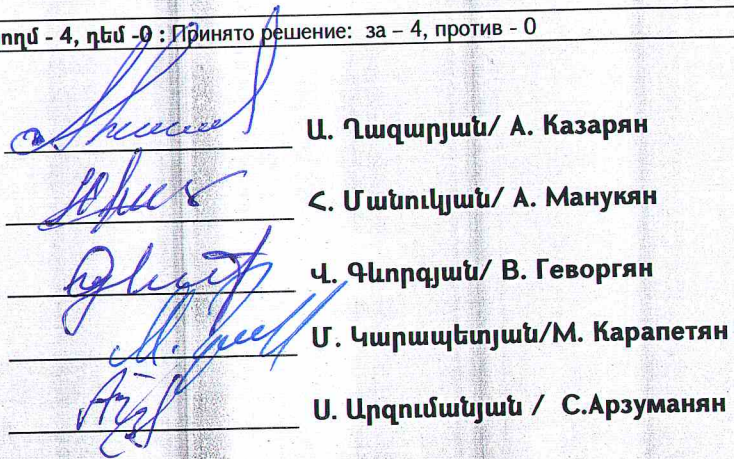 ողմ - 4, դեմ -0 : Принято решение: за – 4, против - 0
Ա. Ղազարյան/ А. Казарян
Հ. Մանուկյան/ А. Манукян
Վ. Գևորգյան/ В. Геворгян
Մ. Կարապետյան/М. Карапетян
Ս. Արզումանյան / С.Арзуманян